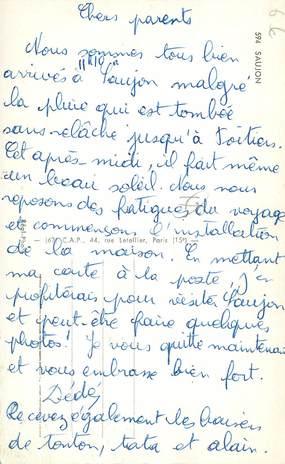 Chers parents
Nous sommes tous bien
arrivés à Saujon malgré
la pluie qui est tombée
sans relâche jusqu'à Poitiers.
Cet après-midi, il fait même
un beau soleil. Nous nous
reposons des fatigues du voyage
et commençons l'installation
de la maison. En mettant
ma carte à la poste, j'en
profiterais pour visiter Saujon
et peut-être faire quelques
photos! Je vous quitte maintenant
et vous embrasse bien fort.
Dédé
Recevez également les baisers
de tonton, tata et alain.
594 SAUJON
C.A.P., 44, rue Letellier, Paris (15e)